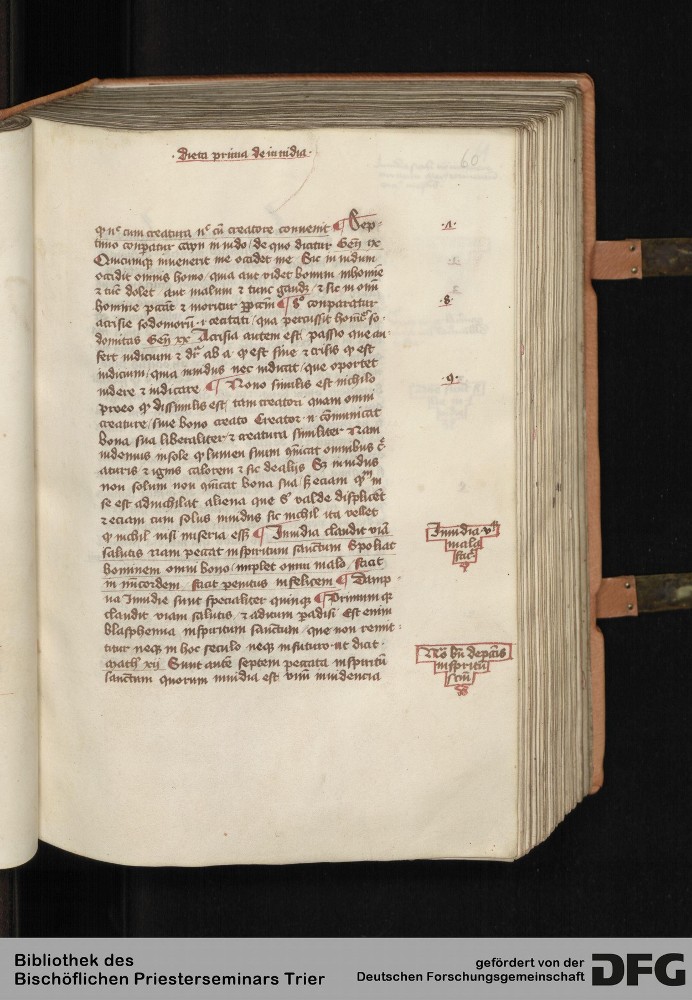 Dieta prima de inuidia
60
q nec cum creatura nec cū creatore conuenit ¶ Sep-
timo conparatur cayn inuido / de quo dicitur Gen̄ ix
Quicumqz inuenerit me occidet me Sic inuidum
occidit omnis homo / quia aut videt bonum in homine
⁊ tūc dolet aut malum ⁊ tunc gaudz / ⁊ sic in om̄i
homine peccat ⁊ moritur ¶ 8º conparatur
acrisie sodomorū .i. cecitati / qua percussit homīes so-
domitas Gen̄ xx Acrisia autem est passio que au-
fert iudicium ⁊ dr̄ ab a qͥ est sine ⁊ crisis qͥ est
iudicium / quia inuidus nec iudicat / que oportet
uidere ⁊ iudicare ¶ Nono similis est nichilo
proeo qͥ dissimilis est / tam creatori quam omni
creature / siue bono creato Creator .n. cōmunicat
bona sua liberaliter / ⁊ creatura similiter Nam
uidemus in sole qͥ lumen suum cōicat omnibus cre-
aturis ⁊ ignis calorem ⁊ sic de alijs Sz inuidus
non solum non cōicat bona sua sz eciam qm̄ in
se est adnichilat aliena que sͥ valde displicet
⁊ eciam cum solus inuidus sic nichil ita vellet
qͥ nichil nisi miseria essz ¶ Inuidia claudit viā
salutis nam peccat in spiritum sanctum Spoliat
hominem omni bono / implet omni malo / facit
facit penitus infelicem ¶ Damp-
na Inuidie sunt specialiter quinqz ¶ Primum qz
claudit viam salutis ⁊ aditum padisi Est enim
blasphemia in spiritum sanctum / que non remit-
titur neqz in hoc seculo neqz in futuro ut dicit.
math xij Sunt autē septem peccata in spiritū
sanctum quorum inuidia est vnū inuidencia
.7.
.8.
.9.
Inuidia
mala
facit
Nō bn̄ de pccīs
in spiritū
scm̄
Bibliothek des
Bischöflichen Priesterseminars Trier
gefördert von der
Deutschen Forschungsgemeinschaft
DFG